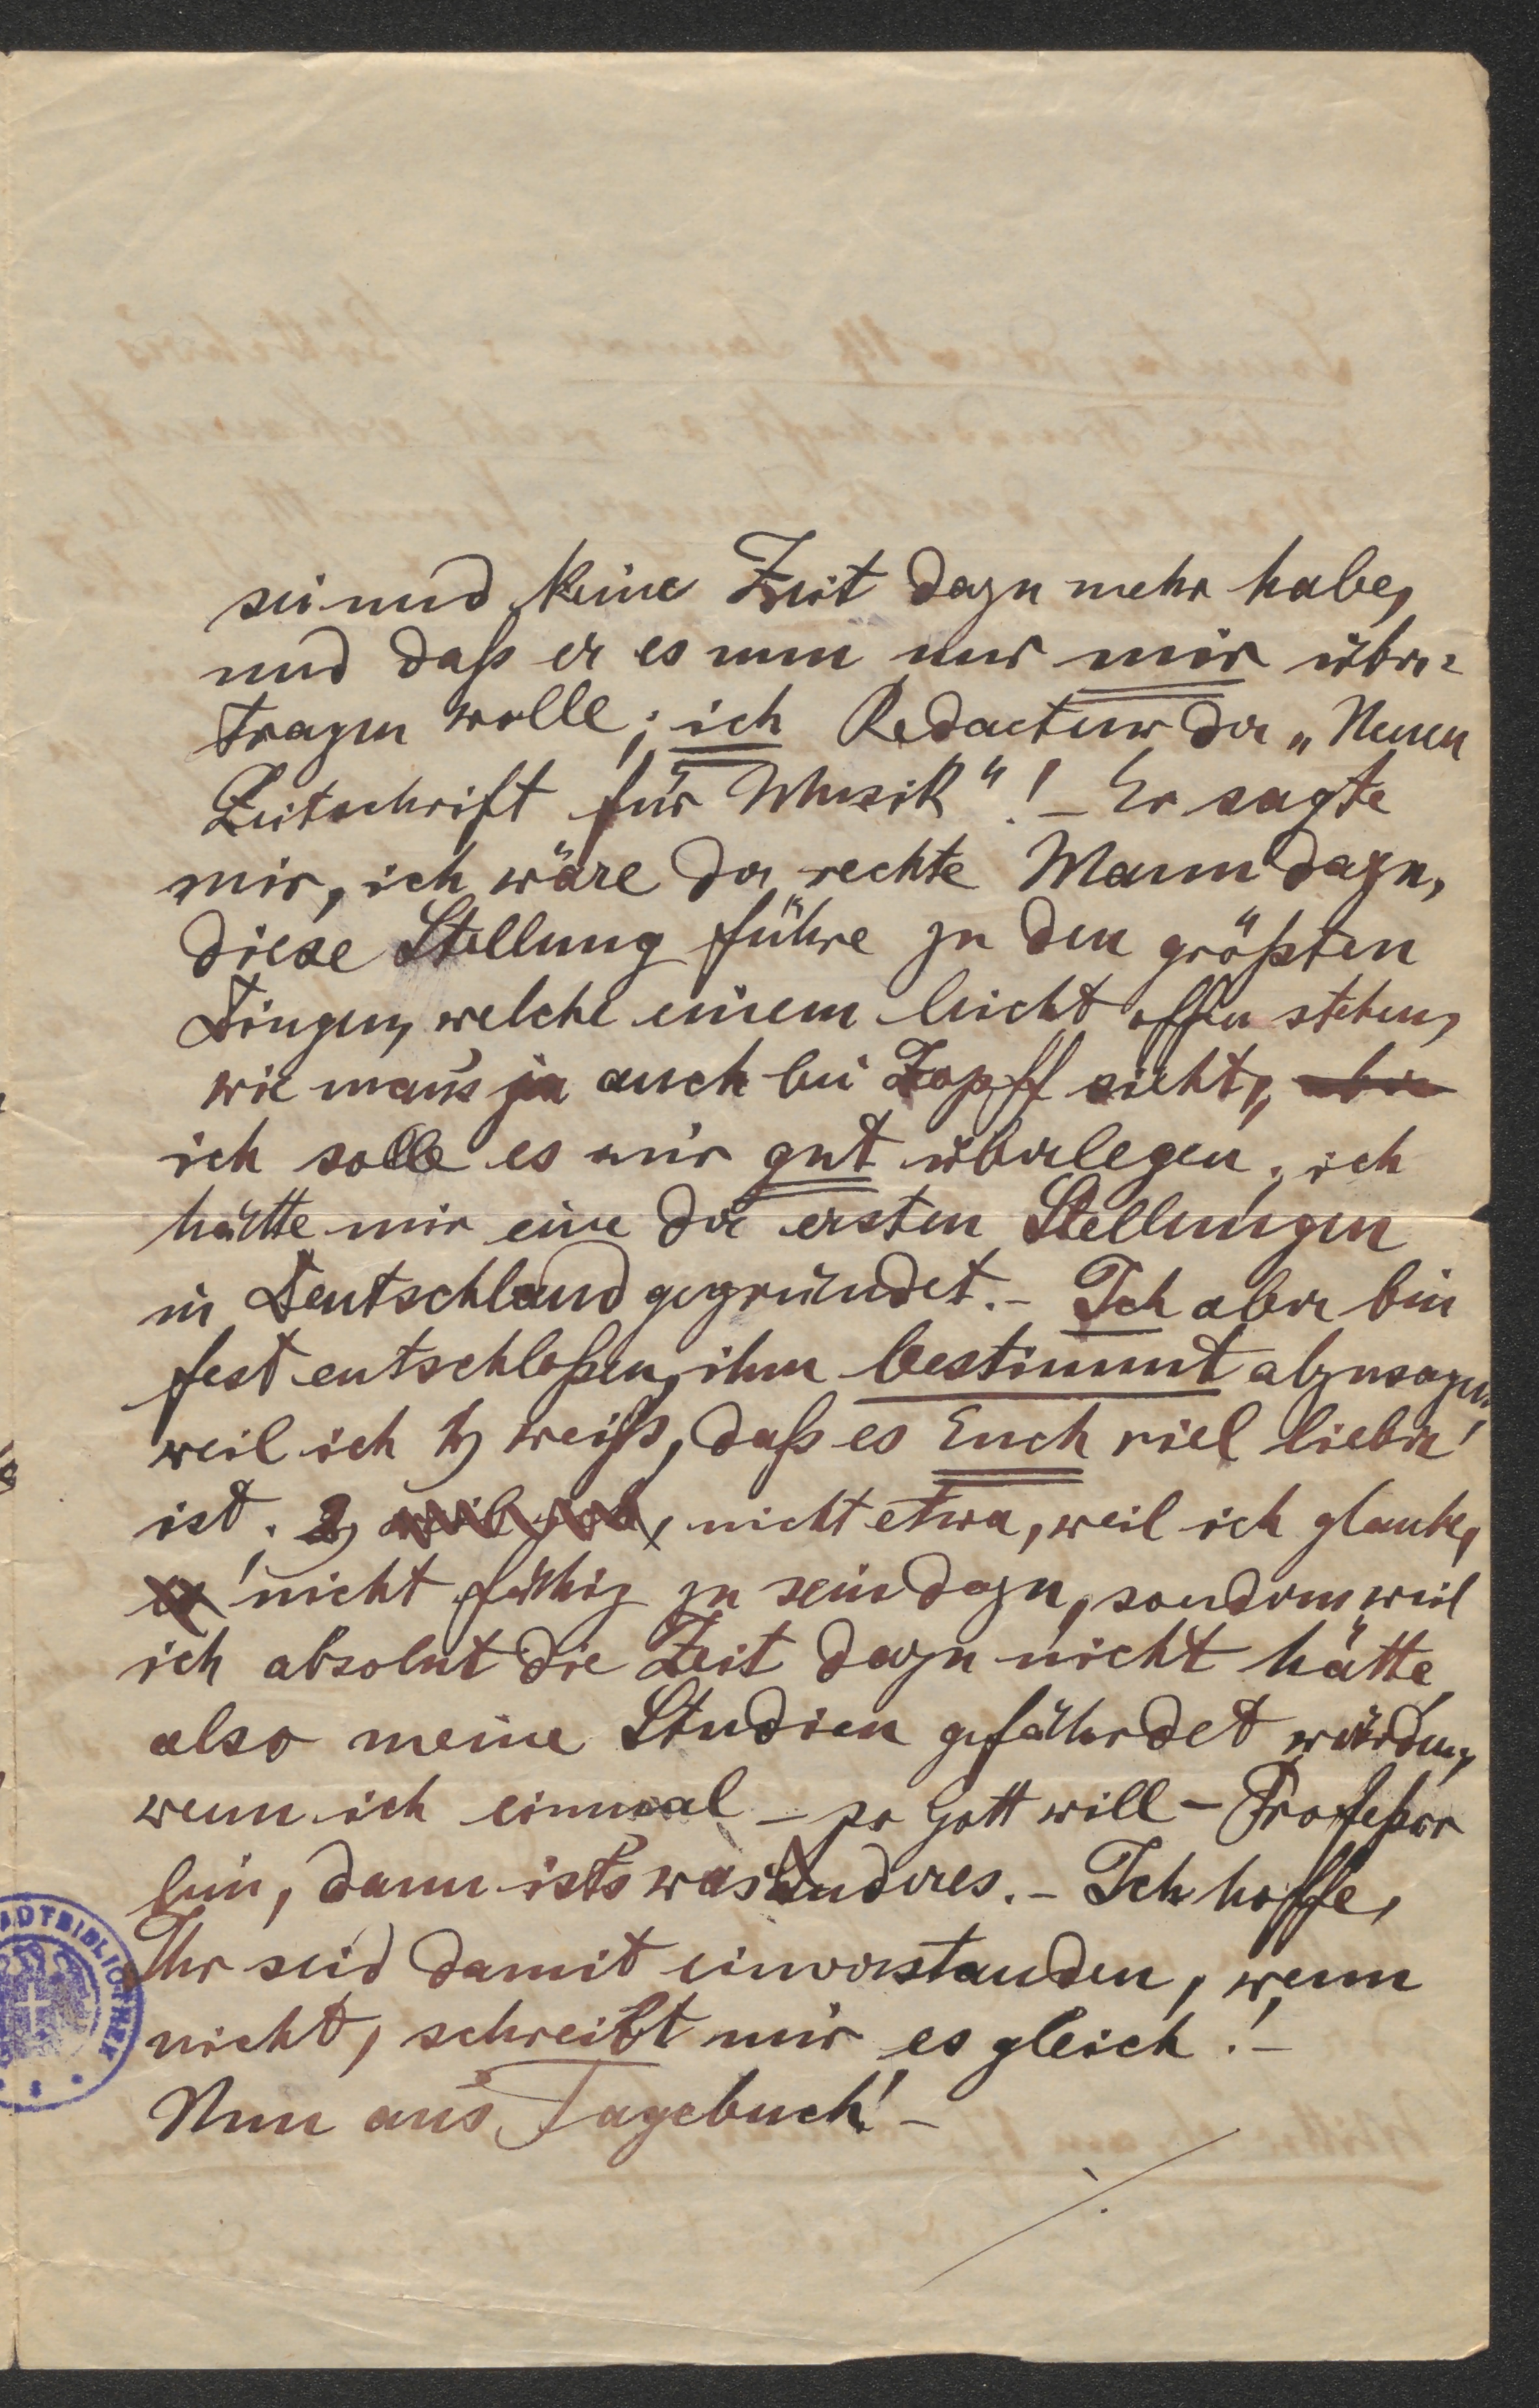 sei und keine Zeit dazu mehr habe,
und daß er es nun nur mir über-
tragen wolle; ich Redacteur der „Neuen
Zeitschrift für Musik“! – Er sagte
mir, ich wäre der rechte Mann dazu,
diese Stellung führe zu den größten
Dingen, welche einem leicht offen stehen,
wie man's ja auch bei Zopff sieht, aber
ich solle es mir gut überlegen; ich
hätte mir eine der ersten Stellungen
in Deutschland gegründet. – Ich aber bin
fest entschloßen, ihm bestimmt abzusagen,
weil ich 1) weiß, daß es Euch viel lieber
ist; 2) weil ich, nicht etwa, weil ich glaube,
es nicht fähig zu sein dazu, sondern weil
ich absolut die Zeit dazu nicht hätte
also meine Studien gefährdet würden,
wenn ich einmal – so Gott will – Profeßor
bin, dann ist's was Anderes. – Ich hoffe,
Ihr seid damit einverstanden, wenn
nicht, schreibt mir es gleich! –
Nun ans Tagebuch! –
./.
STADTBIBLIOTHEK